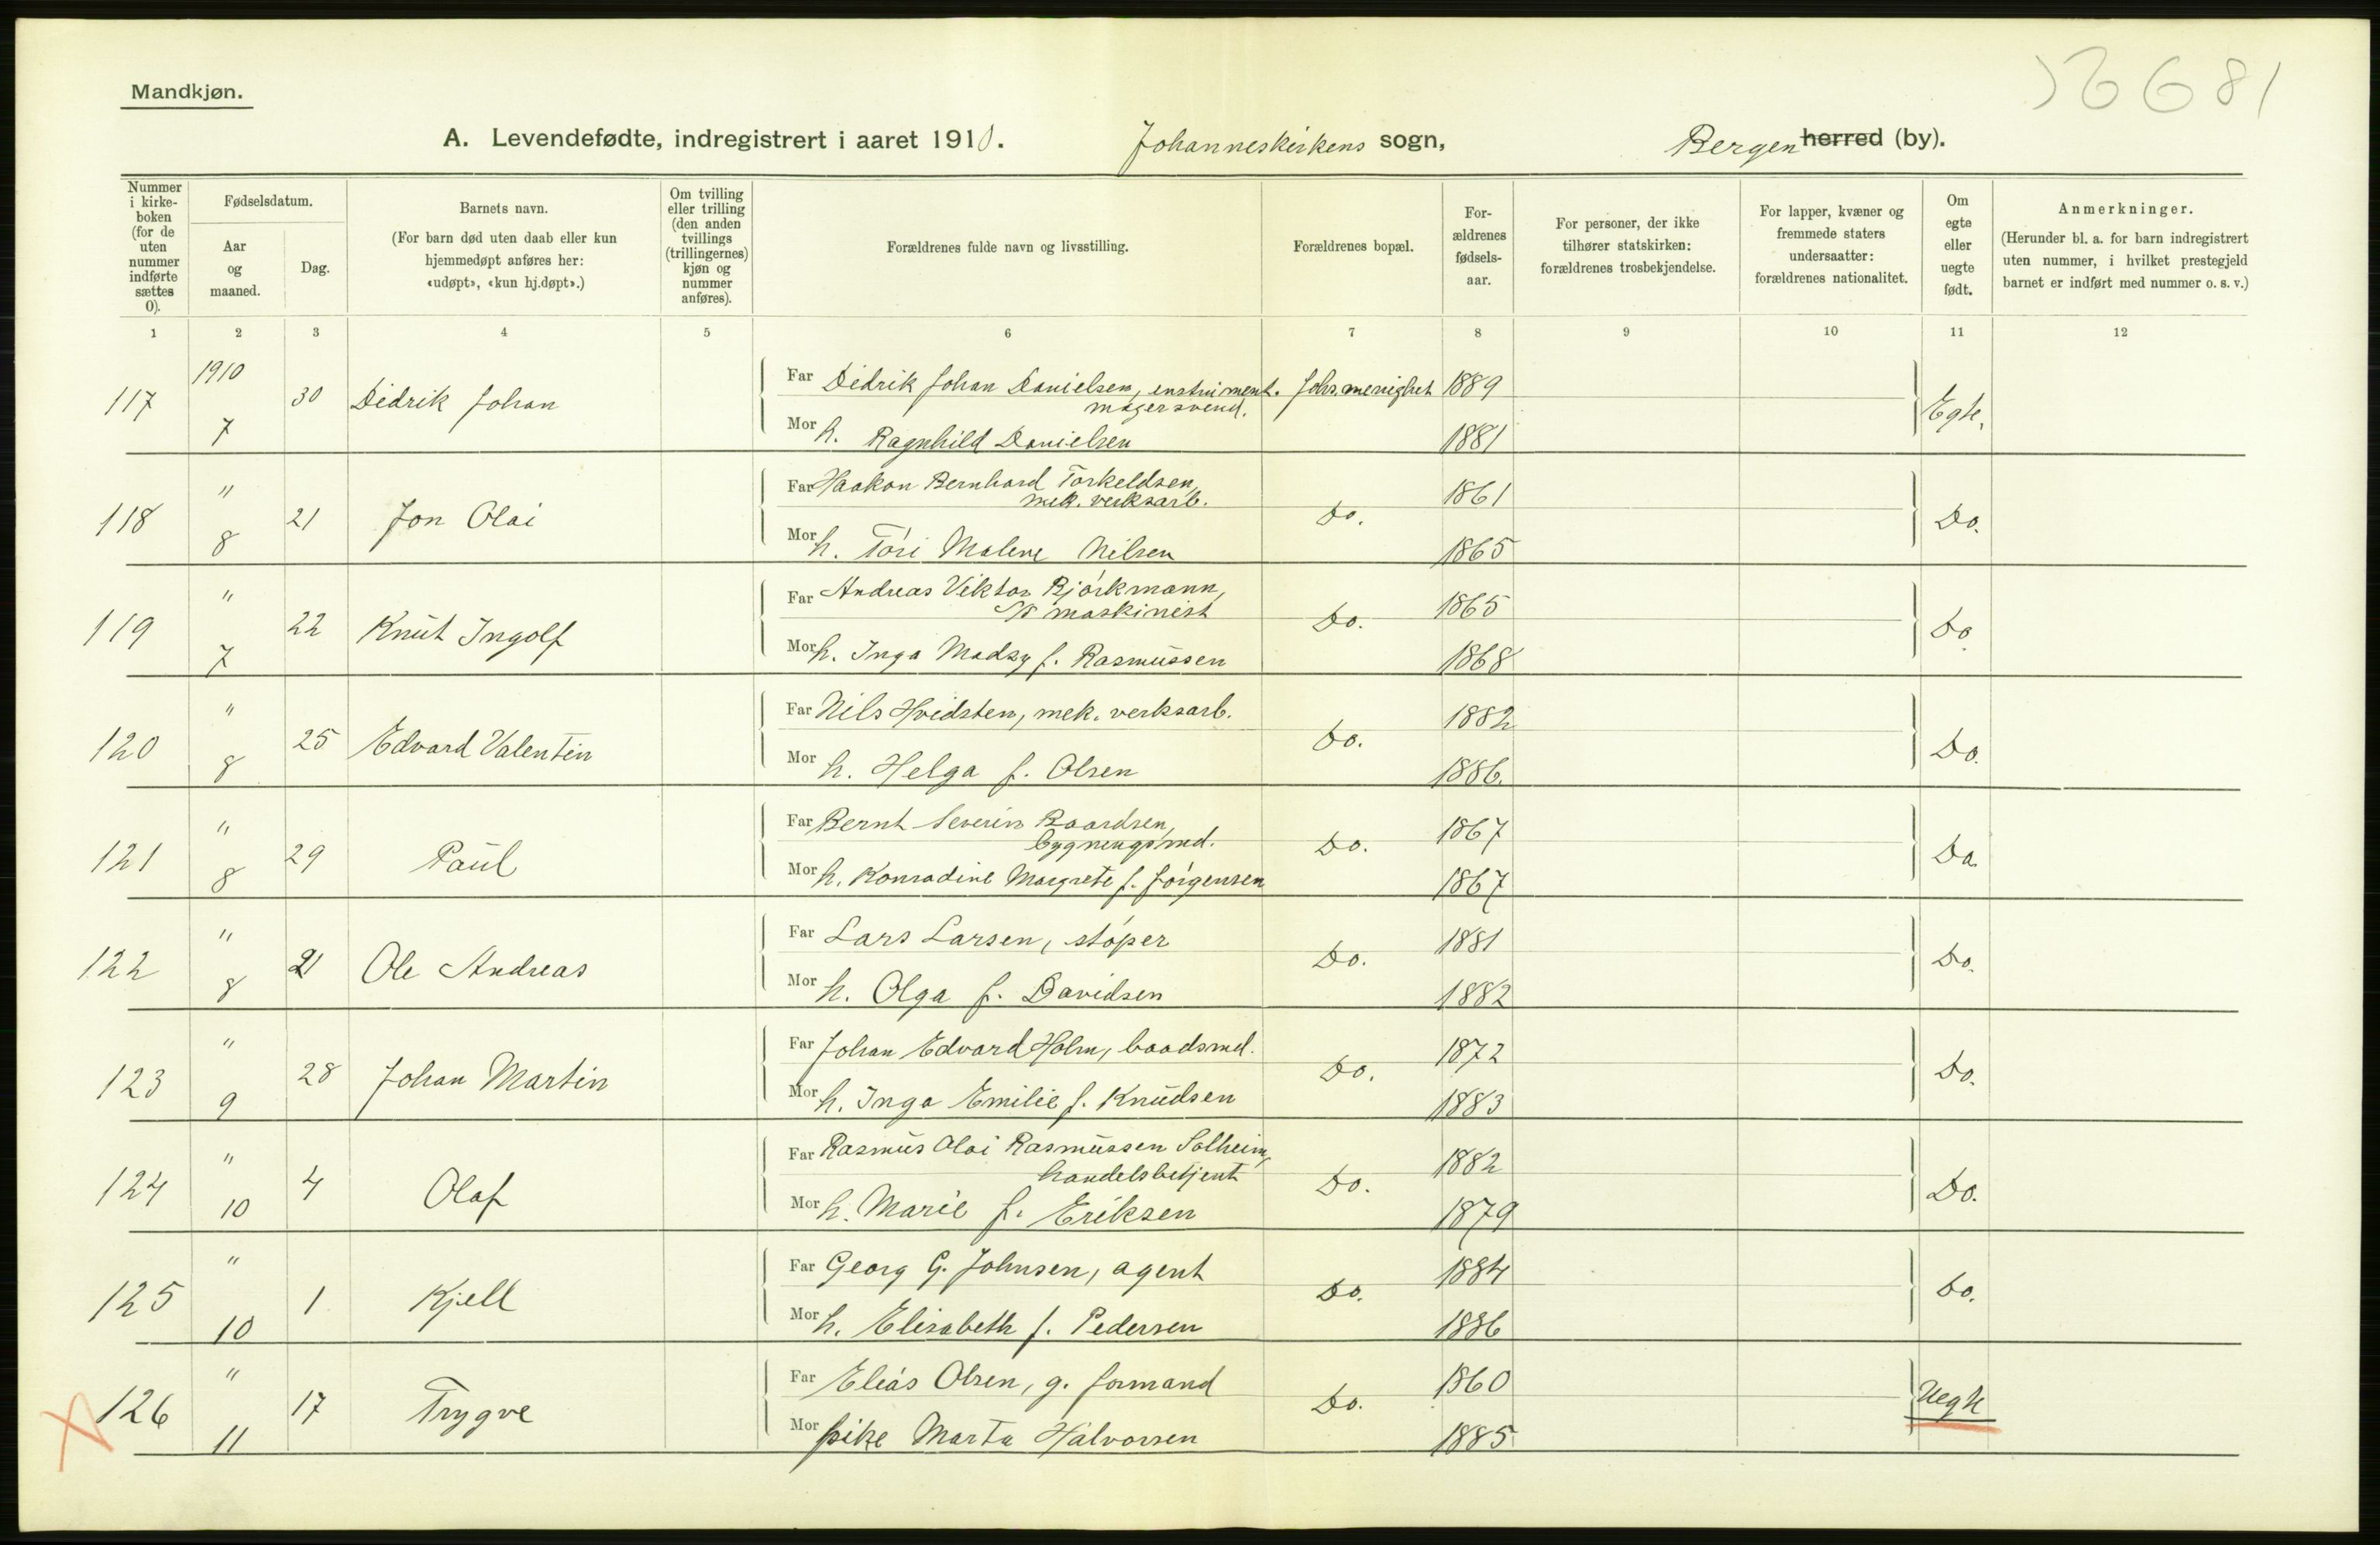 Mandkjøn.
A. Levendefødte, indregistrert i aaret 1910. Johanneskirkens sogn, Bergen herred (by).
Nummer i kirkeboken (for de uten nummer indførte sættes 0).
Fødselsdatum.
Aar og maaned.
Dag.
Barnets navn.
(For barn død uten daab eller kun hjemmedøpt anføres her: «udøpt», «kun hj.døpt».)
Om tvilling eller trilling (den anden tvillings (trillingernes) kjøn og nummer anføres).
Forældrenes fulde navn og livsstilling.
Forældrenes bopæl.
For-ældrenes fødsels-aar.
For personer, der ikke tilhører statskirken: forældrenes trosbekjendelse.
For lapper, kvæner og fremmede staters undersaatter: forældrenes nationalitet.
Om egte eller uegte født.
Anmerkninger.
(Herunder bl. a. for barn indregistrert uten nummer, i hvilket prestegjeld barnet er indført med nummer o. s. v.)
1 2 3 4 5 6 7 8 9 10 11 12
117 1910 7 30 Didrik Johan Far Didrik Johan Danielsen, instrument. Johs. menighet 1889 Egte.
magersvend.
Mor h. Ragnhild Danielsen 1881
118 " 8 21 Jon Olai Far Haakon Bernhard Torkeldsen, Do. 1861 Do.
mek. verksarb.
Mor h. Tori Malene Nilsen 1865
119 " 7 22 Knut Ingolf Far Andreas Viktor Bjørkmann, Do. 1865 Do
S/S maskinist
Mor h. Inga Madsy f. Rasmussen 1868
120 " 8 25 Edvard Valentin Far Nils Hvidsten, mek. verksarb. Do. 1882 Do.
Mor h. Helga f. Olsen 1886.
121 " 8 29 Paul Far Bernt Severin Baardsen, Do. 1867 Do.
bygningsmd.
Mor h. Konradine Margrete f. Jørgensen 1867
122 " 8 21 Ole Andreas Far Lars Larsen, støper Do. 1881 Do.
Mor h. Olga f. Davidsen 1882
123 " 9 28 Johan Martin Far Johan Edvard Holm, baadsmd. Do. 1872 Do.
Mor h. Inga Emilie f. Knudsen 1883
124 " 10 4 Olaf Far Rasmus Olai Rasmussen Solheim, Do. 1882 Do.
handelsbetjent
Mor h. Marie f. Eriksen 1879
125 " 10 1 Kjell Far Georg G. Johnsen, agent Do. 1884 Do.
Mor h. Elisabeth f. Pedersen 1886
126 " 11 17 Trygve Far Elias Olsen, g. formand Do. 1860 Uegte
Mor pike Marta Halvorsen 1885